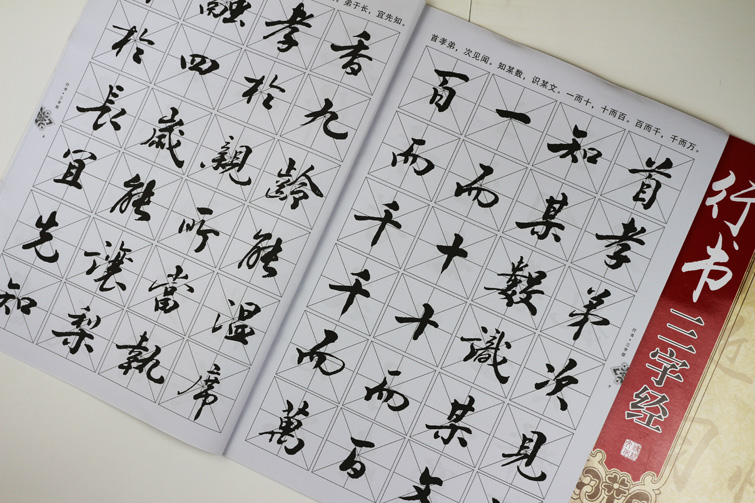 弟于长，宜先知。
香九齡能溫席
孝於親所當執
融四歲能讓梨
於長宜先知
首孝弟，次见闻。知某数，识某文。一而十，十而百。百而千，千而万。
首孝弟次見
知某數識某文
一而十十而百
百而千千而萬
行书
三字经